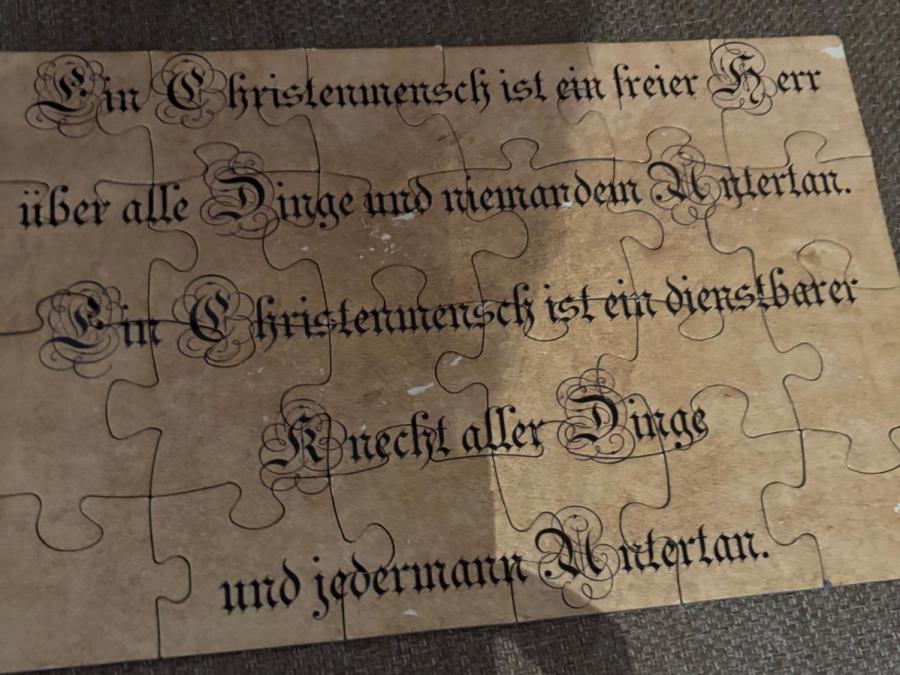 Ein Christenmensch ist ein freier Herr
über alle Dinge und niemandem Untertan.
Ein Christenmensch ist ein dienstbarer
Knecht aller Dinge
und jedermann Untertan.